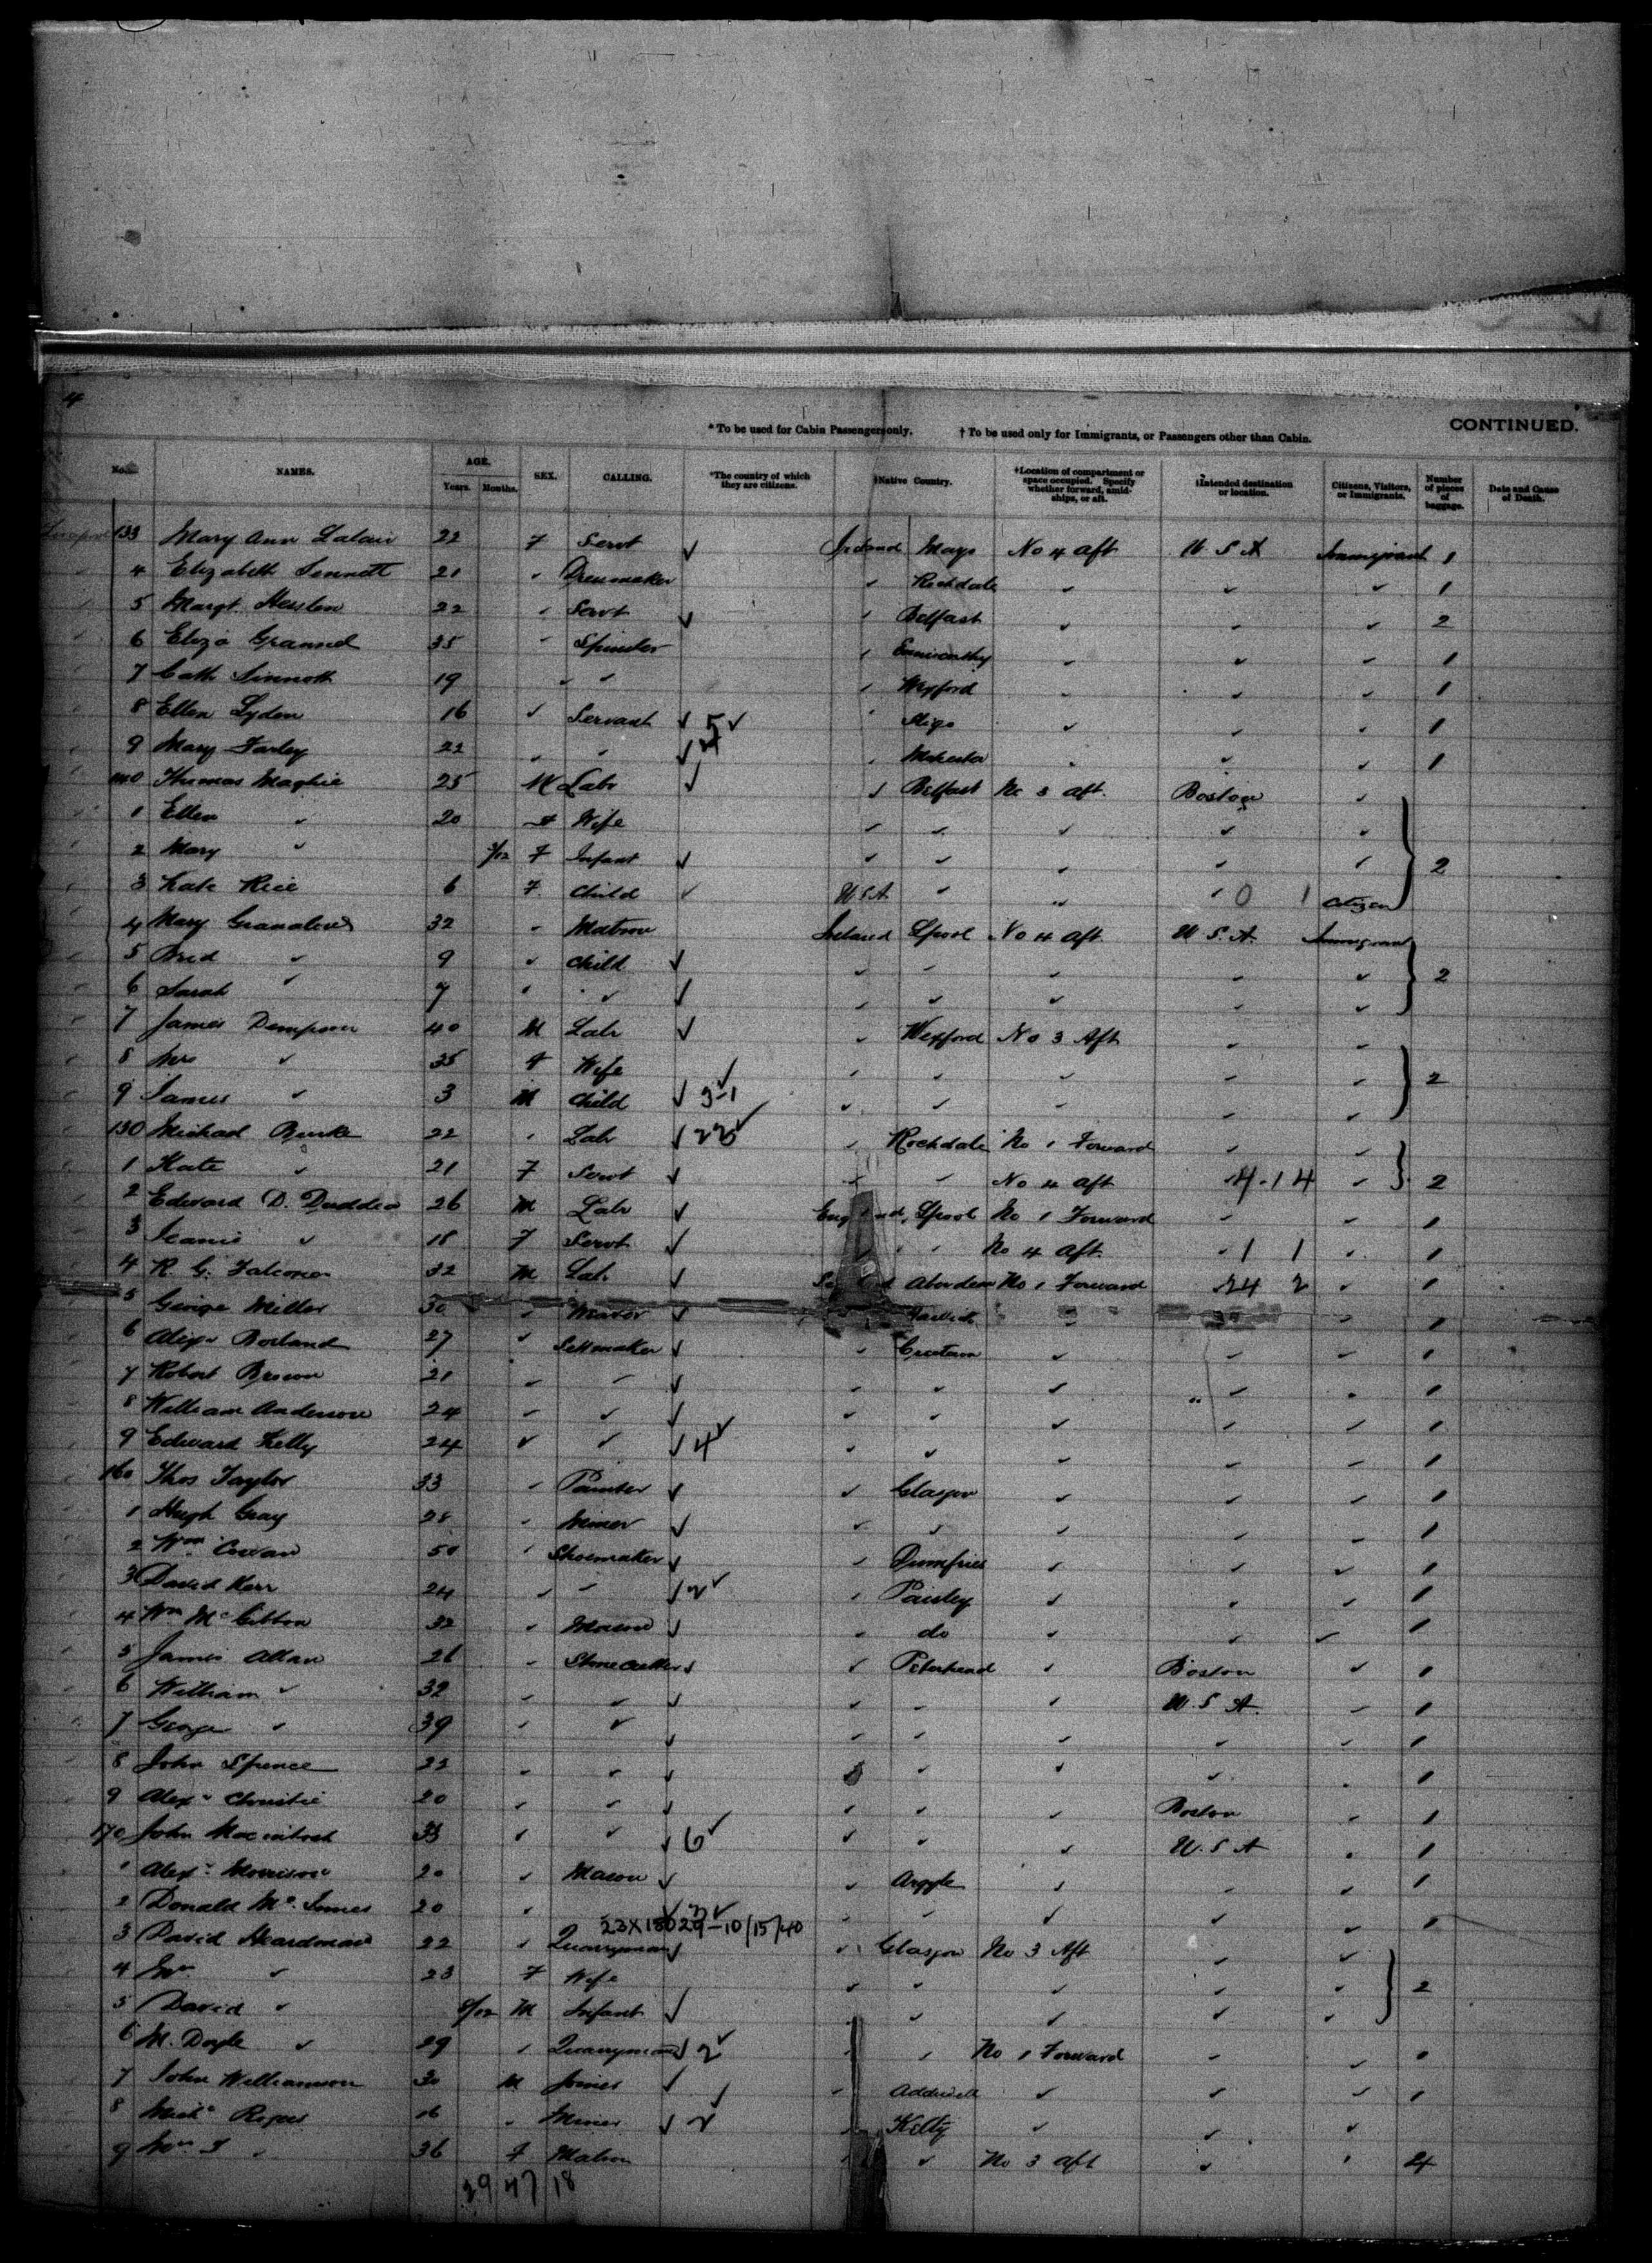 4
CONTINUED.
*To be used for Cabin Passengers only. †To be used only for Immigrants, or Passengers other than Cabin.
No. NAMES. AGE. Years. Months. SEX. CALLING. *The country of which they are citizens. †Native Country. †Location of compartment or space occupied. Specify whether forward, amidships, or aft. †Intended destination or location. Citizens, Visitors, or Immigrants. Number of pieces of baggage. Date and Cause of Death.
133 Mary Ann 22 F Servt ✓ Ireland Mayo No 4 aft U S A Immigrant 1
4 Elizabeth Sennott 21 " Dressmaker " Rochdale " " " 1
5 Margt. Heslen 22 " Servt ✓ " Belfast " " " 2
6 Eliza Grannel 35 " Spinster " Enniscorthy " " " 1
7 Cath Sinnott 19 " " " Wexford " " " 1
8 Ellen Lyden 16 " Servant ✓ 5 ✓ " Sligo " " " 1
9 Mary Farley 22 " " ✓ " " " " 1
140 Thomas Maghie 25 M Labr ✓ " Belfast No 3 aft. Boston "
1 Ellen " 20 F Wife " " " " "
2 Mary " 3/12 F Infant ✓ " " " " " 2
3 Kate Rice 6 F child ✓ U S A " " " 0 1 Citizen
4 Mary 32 " Matron Ireland Lpool No 4 aft U. S. A. Immigrant
5 Brid " 9 " child ✓ " " " " " 2
6 Sarah " 7 " " ✓ " " " " "
7 James Dempsey 40 M Labr ✓ " Wexford No 3 Aft " "
8 Mrs " 35 F Wife " " " " " 2
9 James " 3 M child ✓ 3-1 " " " " "
150 Michael Burke 22 " Labr ✓ 22 ✓ " Rochdale No 1 Forward " "
1 Kate " 21 F Servt ✓ " " No 4 aft " 4-14 " 2
2 Edward D. 26 M Labr ✓ England Lpool No 1 Forward " " 1
3 Jeanie " 18 F Servt ✓ " " No 4 aft. " 1 1 " 1
4 R. G. Falconer 32 M Lab. ✓ Aberdeen No 1 Forward " 24 2 " 1
5 George Miller 30 " Mason ✓ " " " 1
6 Alexr Borland 27 " Settmaker ✓ " Creetown " " " 1
7 Robert Brown 21 " " ✓ " " " " " 1
8 William Anderson 24 " " ✓ " " " " " 1
9 Edward Kelly 24 " " ✓ 4 ✓ " " " " " 1
160 Thos Taylor 33 " Painter ✓ " Glasgow " " " 1
1 Hugh Gray 28 " Miner ✓ " " " " " 1
2 Wm Cowan 50 " Shoemaker ✓ " Dumfries " " " 1
3 David Kerr 24 " " ✓ 2 ✓ " Paisley " " " 1
4 Wm McGibbon 32 " Mason ✓ " do " " " 1
5 James Allan 26 " Stonecutter ✓ " Peterhead " Boston " 1
6 William " 32 " " ✓ " " " U. S. A. " 1
7 George " 39 " " ✓ " " " " " 1
8 John Spence 22 " " ✓ " " " " 1
9 Alexr Christie 20 " " ✓ " " " Boston " 1
170 John Macintosh 33 " " ✓ 6 ✓ " " " U. S. A " 1
1 Alexr Morrison 20 " Mason ✓ " Argyle " " " 1
2 Donald McInnes 20 " " " " " " 1
23X18029-10/15/40
3 David Heardman 22 " Quarryman ✓ " Glasgow No 3 Aft " "
4 Mrs " 23 F Wife " " " " " 2
5 David " 8/12 M Infant ✓ " " " " "
6 M. Doyle " 29 " Quarryman ✓ 2 ✓ " " No 1 Forward " " 1
7 John Williamson 30 M Joiner ✓ " Addiewell " " " 1
8 16 " Miner ✓ 2 ✓ Kelty " " "
9 36 F Matron " " No 3 aft " " 4
29 47 18